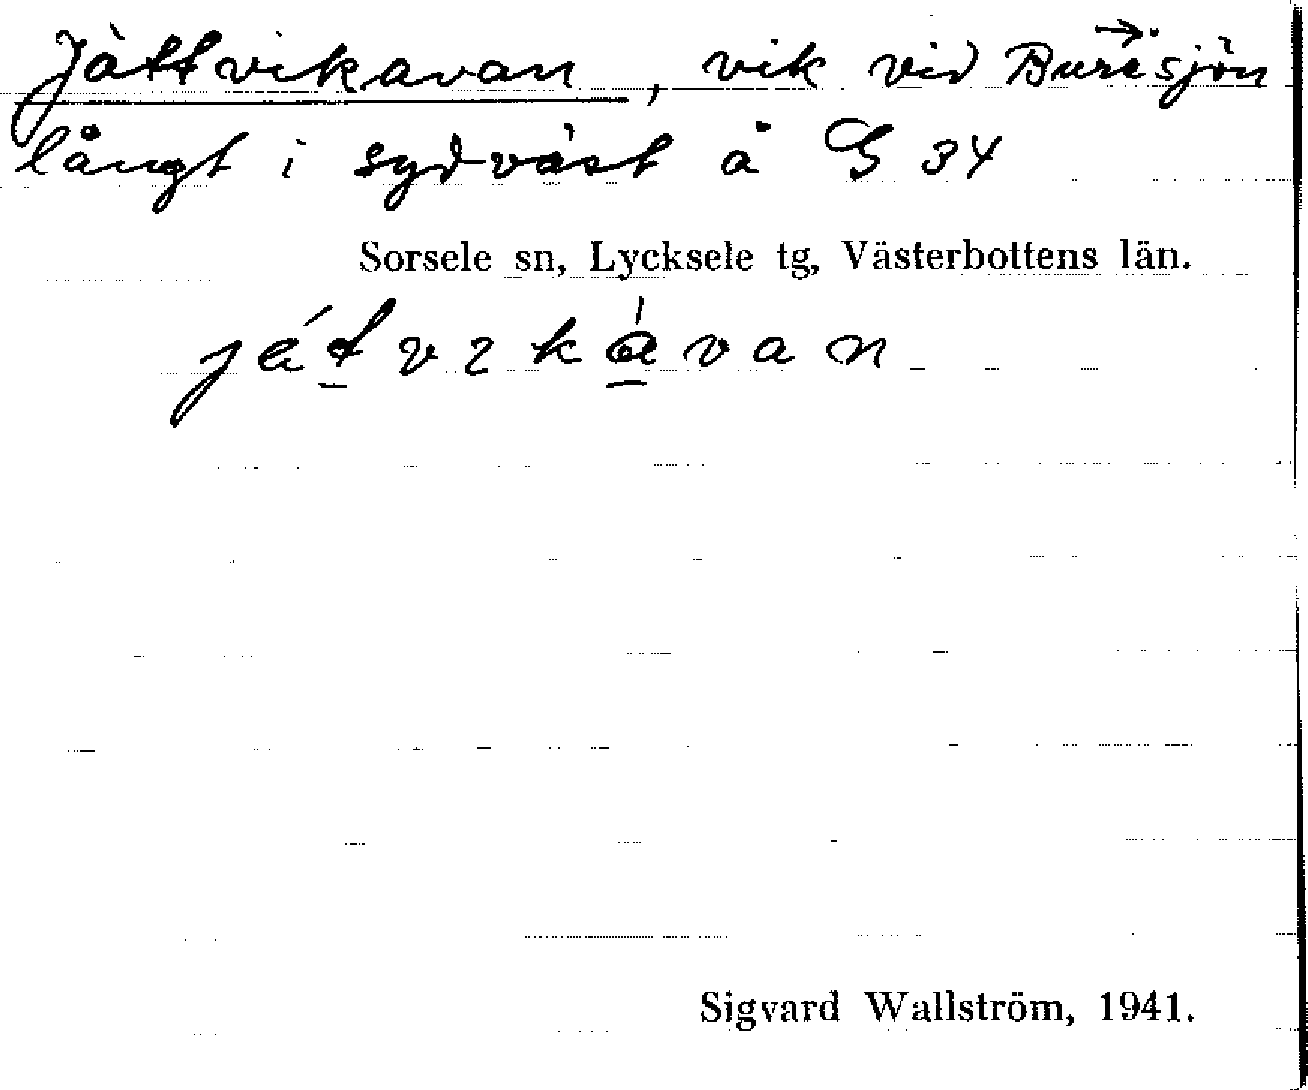 Jättvikavan, vik vid Buresjön
långt i sydväst å G 34
Sorsele sn, Lycksele tg, Västerbottens län.
Sigvard Wallström, 1941.